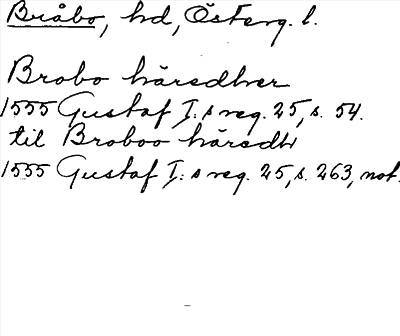 Bråbo, hd, Österg. l.
Brobo häredher
1555 Gustaf I:s reg. 25, s. 54.
til Broboo häredh
1555 Gustaf I:s reg. 25, s. 263, not.